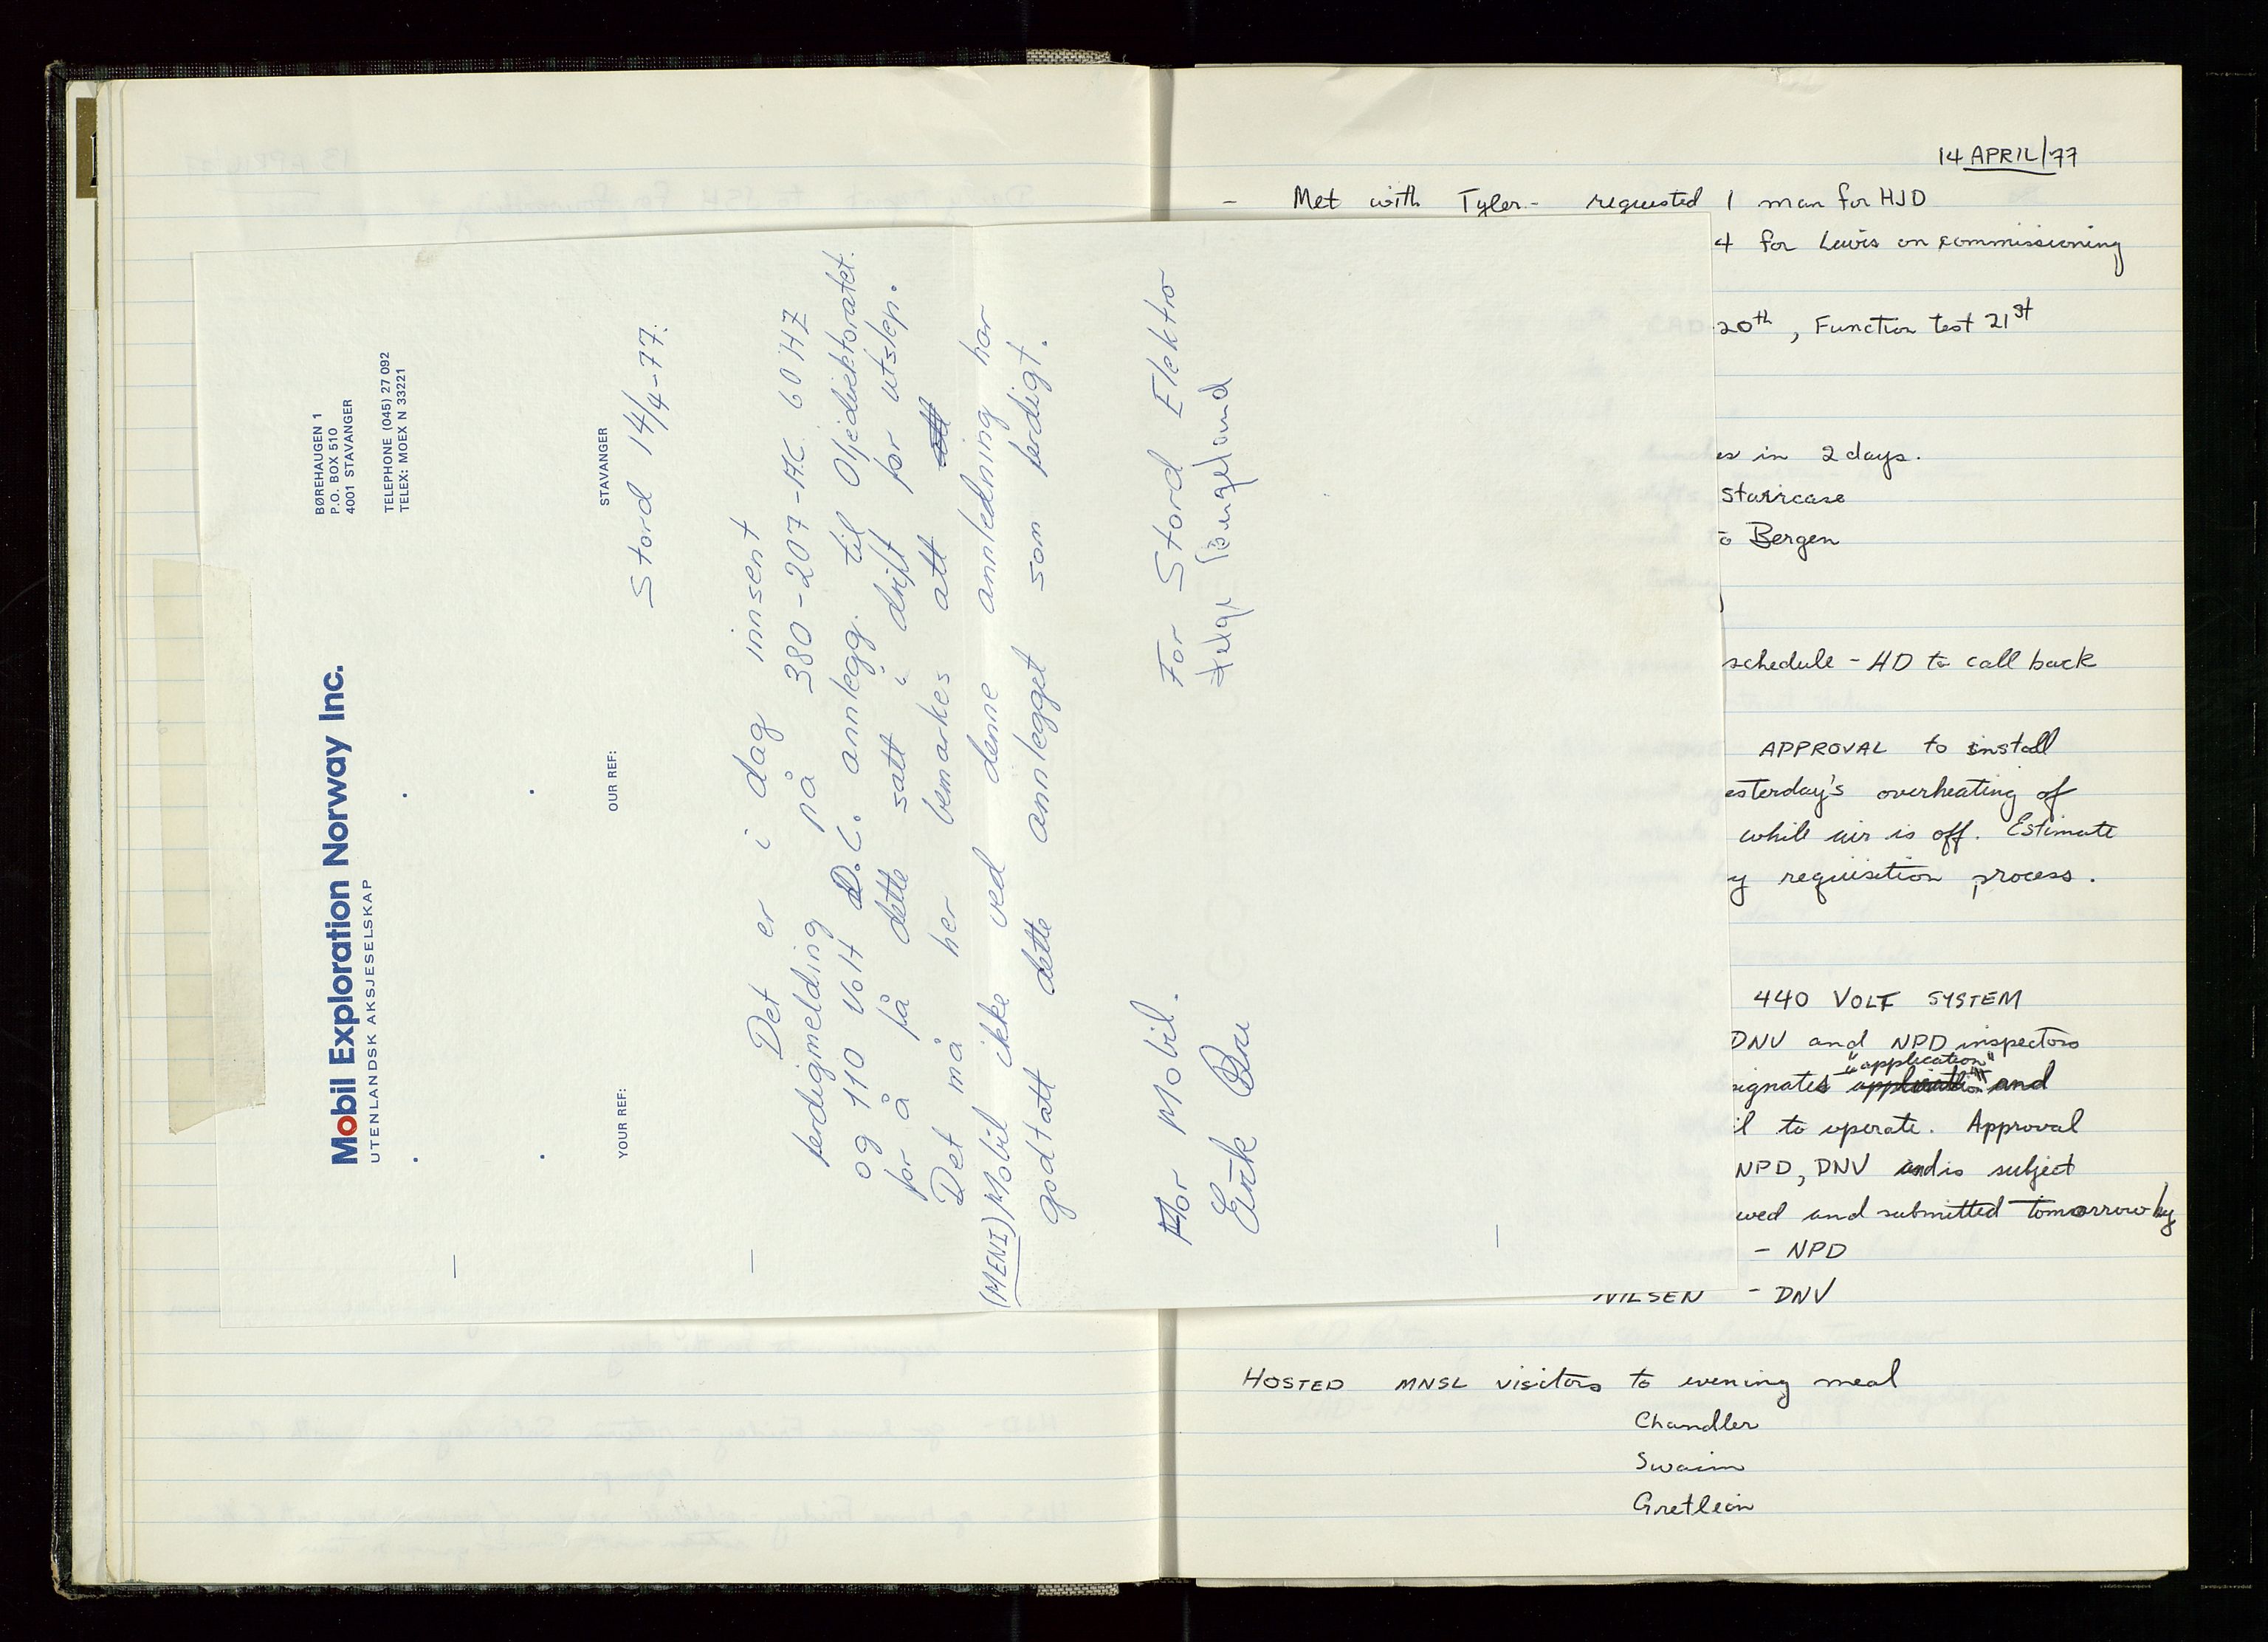 Mobil Exploration Norway Inc.
UTENLANDSK AKSJESELSKAP
BØREHAUGEN 1
P.O. BOX 510
4001 STAVANGER
TELEPHONE (045) 27 092
TELEX: MOEX N 33221
YOUR REF:
OUR REF:
STAVANGER
Stord 14/4-77.
Det er i dag innsent
ferdigmelding på 380-207-A.C. 60 HZ
og 110 Volt D.C. annlegg. til Oljedirektoratet.
for å få dette satt i drift før utslep.
Det må her bemarkes att
(MENI) Mobil ikke ved denne annledning har
godtatt dette annlegget som ferdigt.
For Mobil.
Eirik Bru
For Stord Elektro
Helge
14 APRIL/77
- Met with Tyler - requested 1 man for HJD
4 for Lewis on commissioning
20th, Function test 21st
es in 2 days.
staircase
Bergen
schedule - HD to call back
APPROVAL to install
esterday's overheating of
while air is off. Estimate
y requisition process.
440 VOLT SYSTEM
DNV and NPD inspectors
"application"
signates and
il to operate. Approval
NPD, DNV and is subject
wed and submitted tomorrow by
- NPD
NILSEN - DNV
HOSTED MNSL visitors to evening meal
Chandler
Swaim
Gretlein